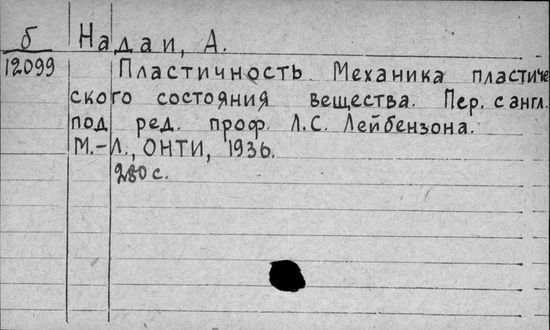 б Надаи, А.
12099 Пластичность. Механика пластиче
ского состояния вещества. Пер. с англ.
под ред. проф. Л.С. Лейбензона.
М.-Л., ОНТИ, 1936.
280 с.